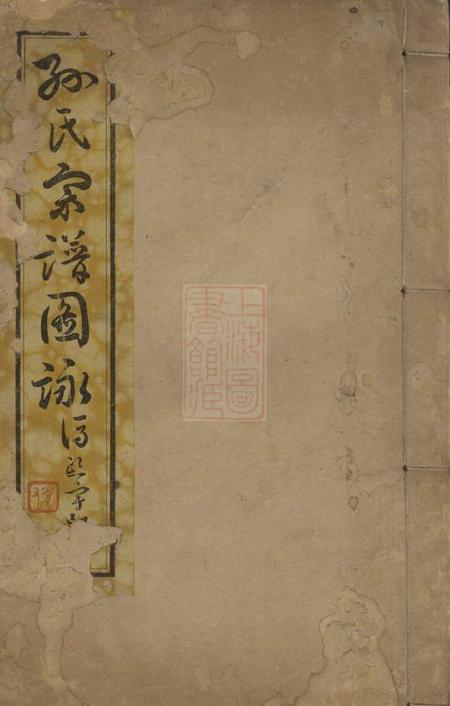 孫氏宗譜圖詠
上海圖書館藏